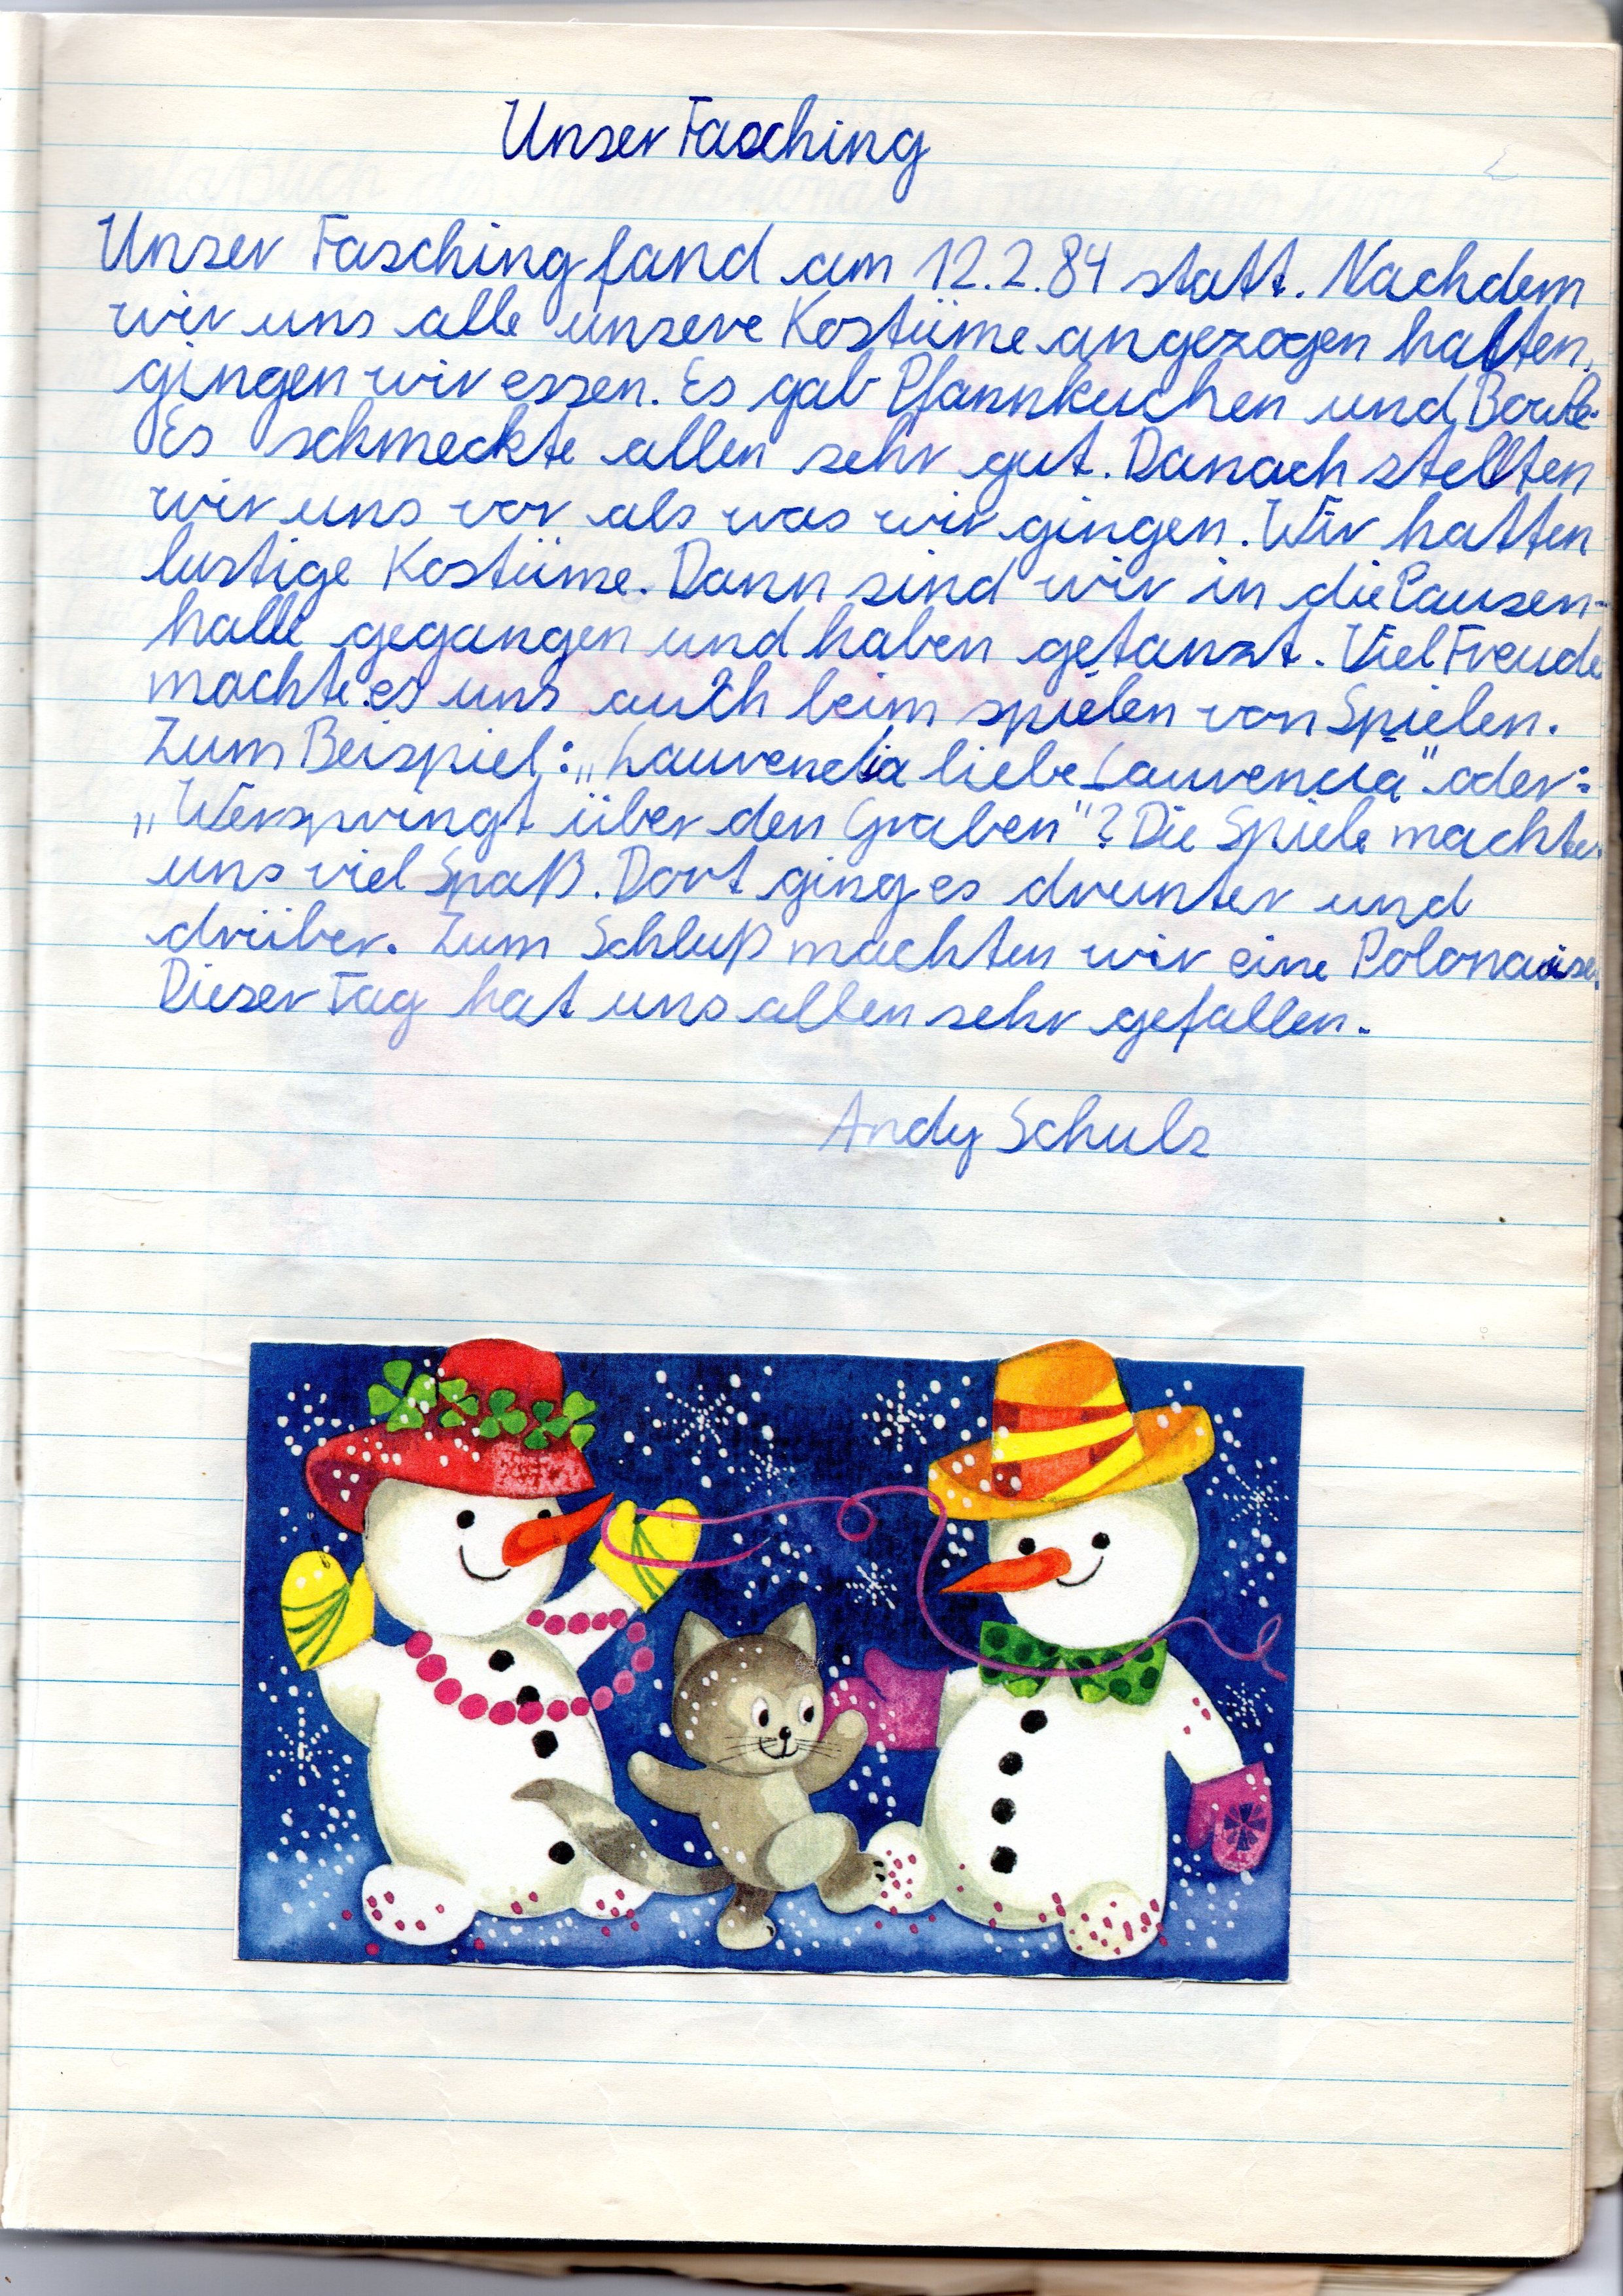 Unser Fasching
Unser Fasching fand am 12.2.84 statt. Nachdem
wir uns alle unsere Kostüme angezogen hatten,
gingen wir essen. Es gab Pfannkuchen und Bowle.
Es schmeckte allen sehr gut. Danach stellten
wir uns vor als was wir gingen. Wir hatten
lustige Kostüme. Dann sind wir in die Pausen-
halle gegangen und haben getanzt. Viel Freude
machte es uns auch beim spielen von Spielen.
Zum Beispiel: „Laurencia liebe Laurencia" oder:
„Wer springt über den Graben"? Die Spiele machten
uns viel Spaß. Dort ging es drunter und
drüber. Zum Schluß machten wir eine Polonaise.
Dieser Tag hat uns allen sehr gefallen.
Andy Schulz